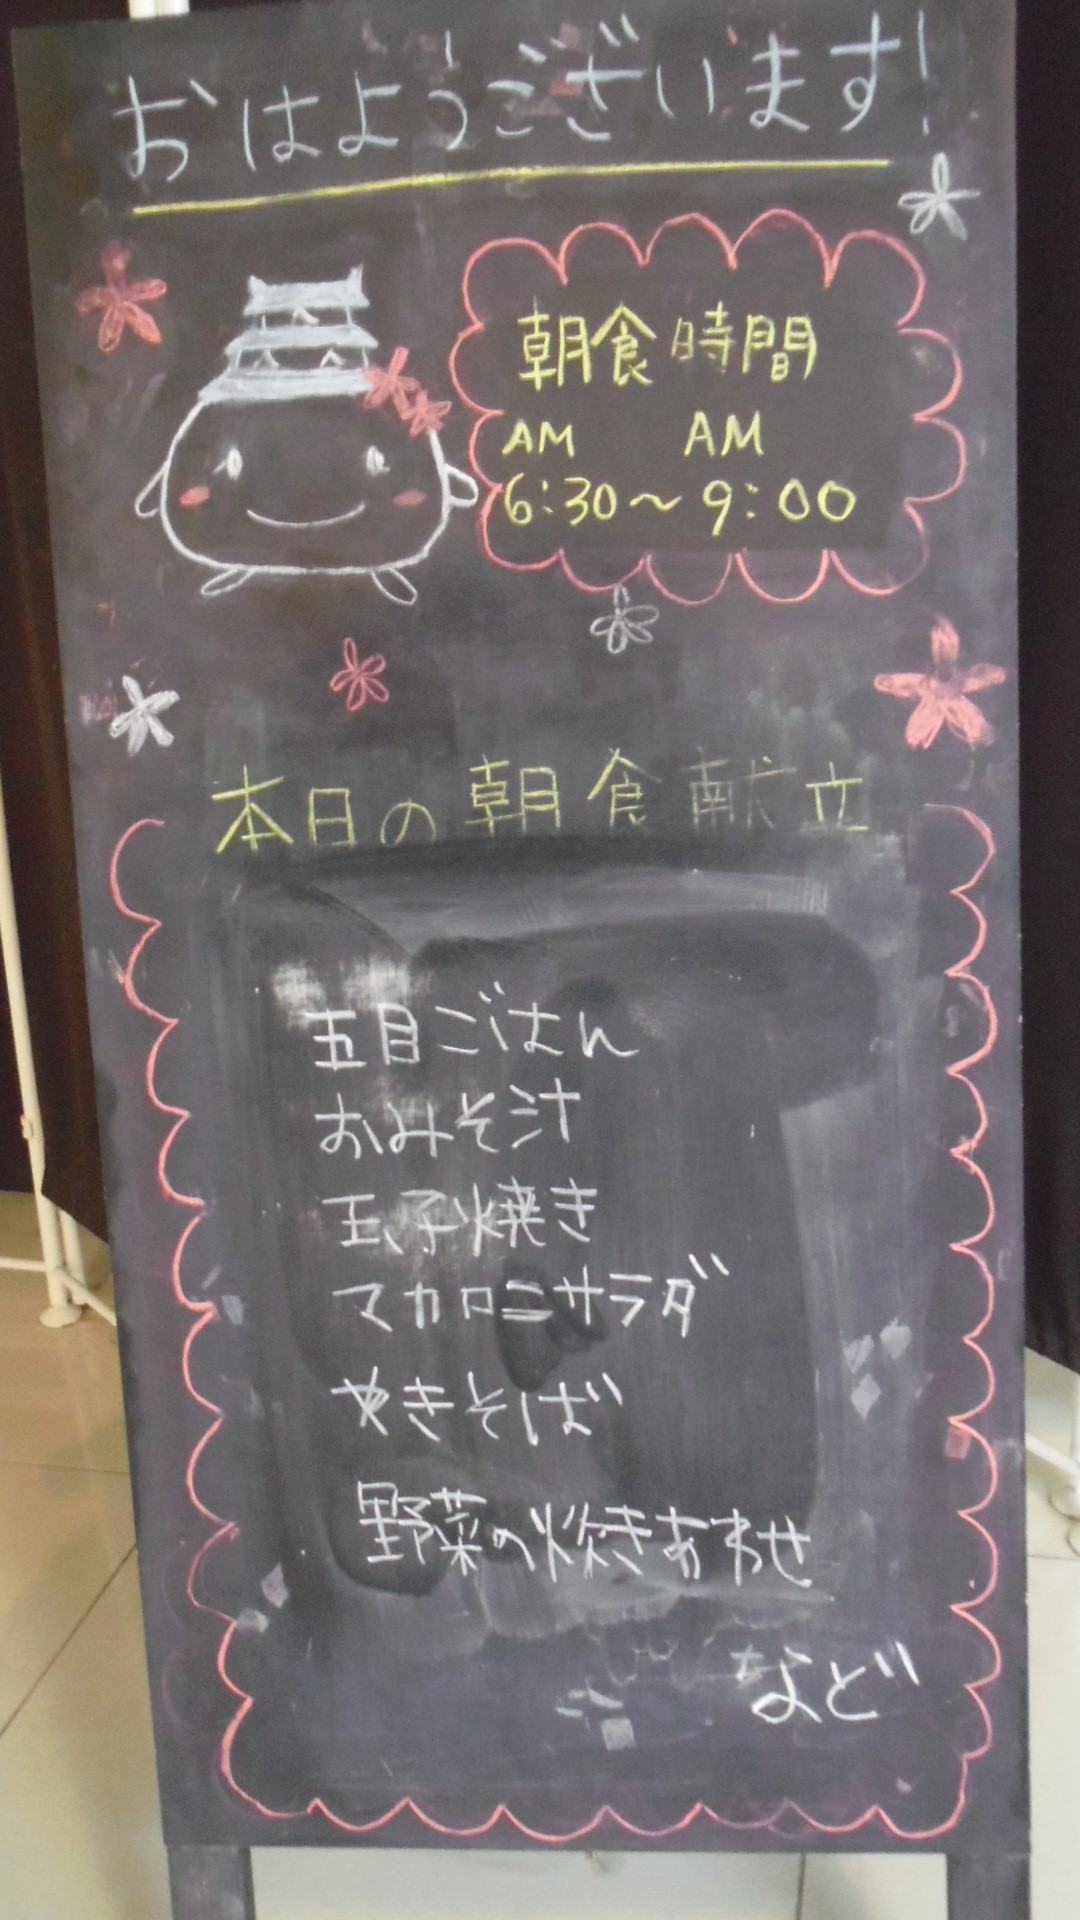 おはようございます!
朝食時間
AM AM
6:30～9:00
本日の朝食献立
五目ごはん
おみそ汁
玉子焼き
マカロニサラダ
やきそば
野菜の炊きあわせ
など